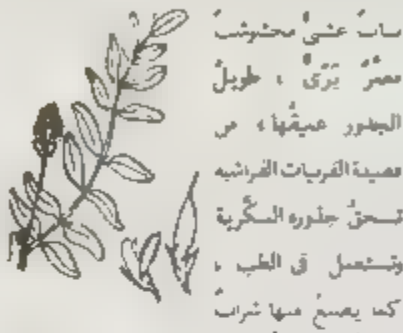 نباتٌ عشبيٌّ مخشوشبٌ
معمّرٌ بَرّيٌّ ، طويلُ
الجذور عميقُها ، من
فصيلة القرنيات الفراشيه
تسحقُ جذوره السكّرية
وتستعمل في الطب ،
كما يصنعُ منها شرابٌ